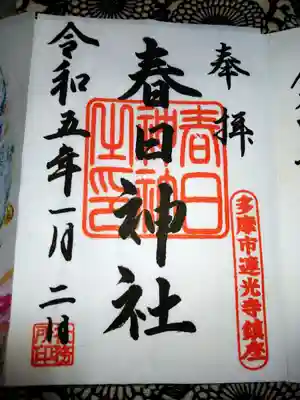 奉拝
春日神社
春日神社之印
多摩市連光寺鎮座
令和五年一月二日
社務所印